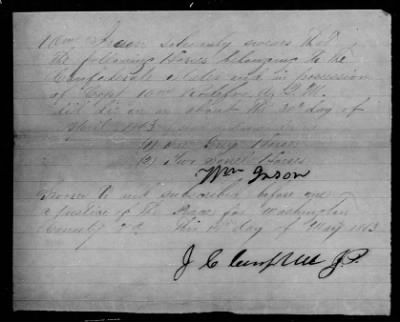 Wm Inson Solemnly swears that
the following Horses belonging to the
Confederate States and in possession
of Capt Wm
did die on or about the 30th day of
April 1863
(1) one Gray Horse
(2) Two Sorrel Horses
Wm Inson
Sworn to and subscribed before me
a Justice of the Peace for Washington
County Va This day of May 1863
J C Campbell J.P.